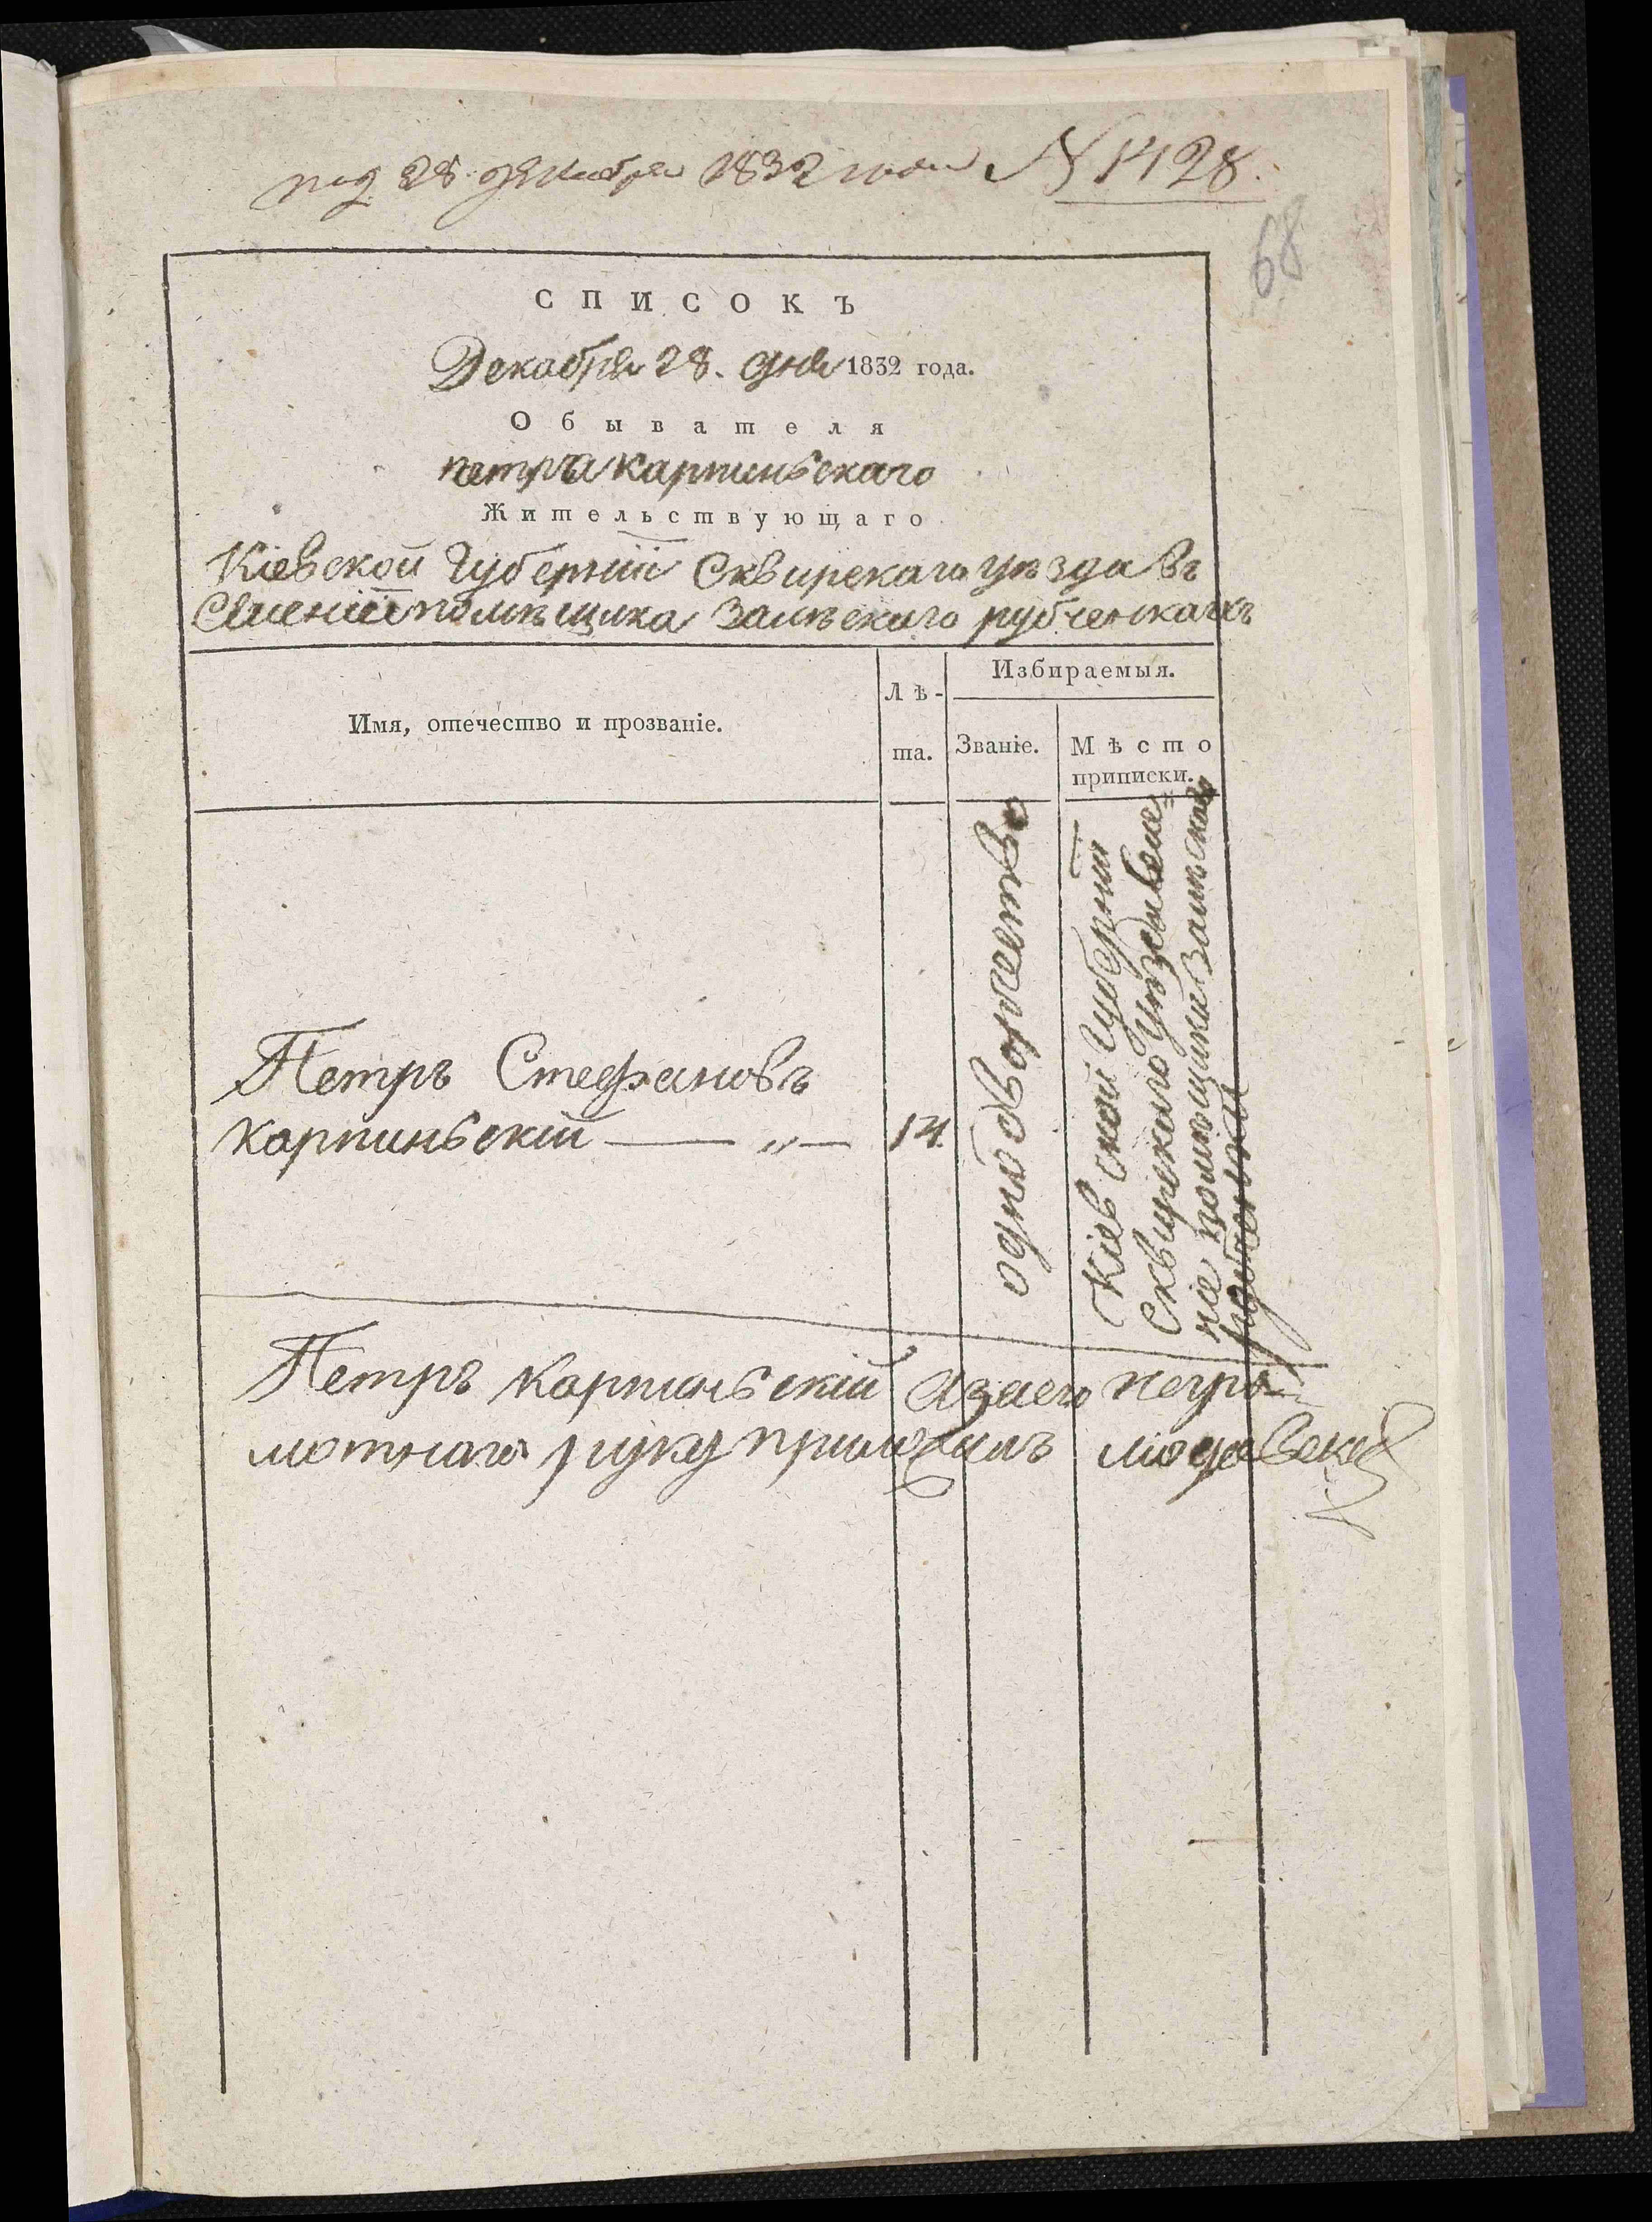 под 28 декабря 1832 года № 1428.
68
СПИСОКЪ
Декабря 28. дня 1832 года.
Обывателя
петра карпиньскаго
Жительствующаго
Кіевской Губерніи Сквирскаго уѣзда въ
Именіи помѣщика Залѣскаго рубченкахъ
Имя, отечество и прозваніе.
Лѣ-
та.
Избираемыя.
Званіе.
Мѣсто
приписки.
Петръ Стефановъ
карпиньскій — „ —
14.
однодворчество
Кіевской Губерніи
Сквирскаго уѣзда име=
ніе помѣщика Залѣскаго
рубченки
Петръ карпиньскій а за его негра=
мотнаго руку приложилъ